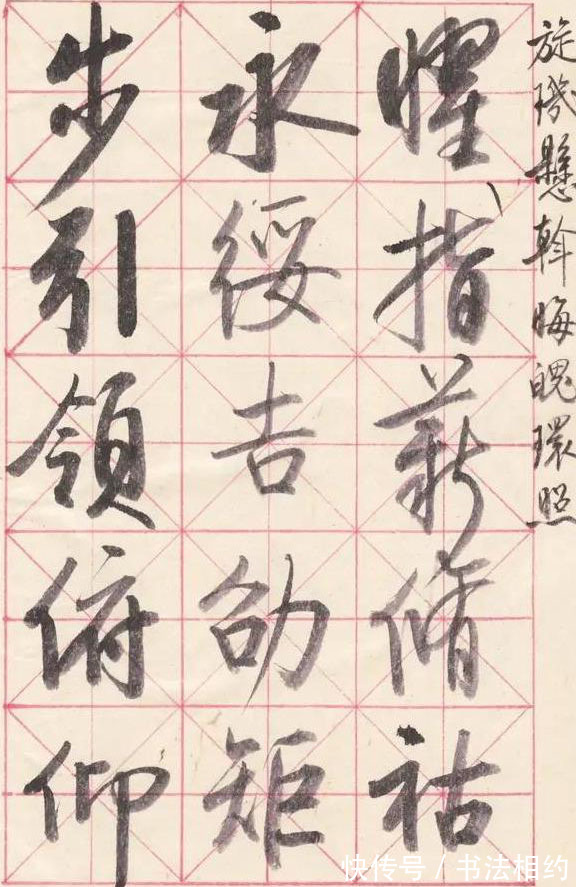 旋璣懸斡晦魄環照
曜指薪脩祜
永綏吉劭矩
步引領俯仰
快传号 / 书法相约